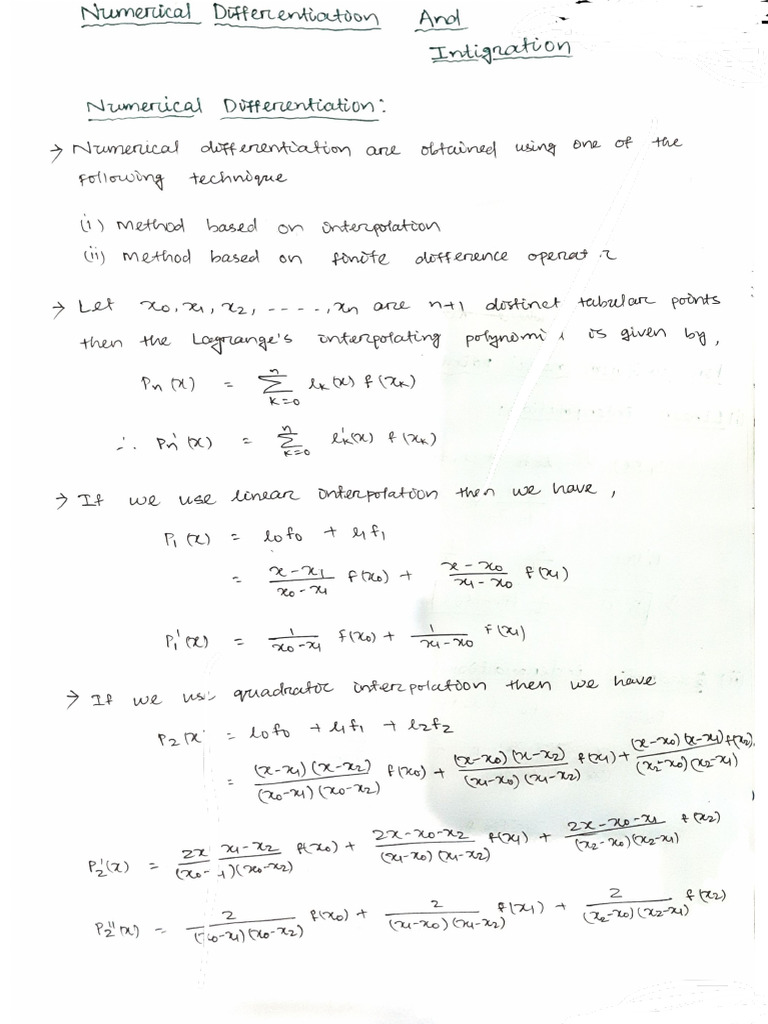 Numerical Differentiatoon And
Intigration
Numerical Differentiation:
→ Numerical differentiation are obtained using one of the
following technique
(i) Method based on interpolation
(ii) Method based on finite difference operat r
→ Let x₀, x₁, x₂, - - - -, xₙ are n+1 distinct tabular points
then the Lagrange's interpolating polynomi l is given by,
Pₙ(x) = Σ_{k=0}^{n} lₖ(x) f(xₖ)
∴ Pₙ'(x) = Σ_{k=0}^{n} lₖ'(x) f(xₖ)
→ If we use linear interpolation then we have,
P₁(x) = l₀f₀ + l₁f₁
= (x-x₁)/(x₀-x₁) f(x₀) + (x-x₀)/(x₁-x₀) f(x₁)
P₁'(x) = 1/(x₀-x₁) f(x₀) + 1/(x₁-x₀) f(x₁)
→ If we us quadratic interpolation then we have
P₂(x = l₀f₀ + l₁f₁ + l₂f₂
= (x-x₁)(x-x₂)/(x₀-x₁)(x₀-x₂) f(x₀) + (x-x₀)(x-x₂)/(x₁-x₀)(x₁-x₂) f(x₁) + (x-x₀)(x-x₁)/(x₂-x₀)(x₂-x₁) f(x₂)
P₂'(x) = 2x x₁-x₂/(x₀- ₁)(x₀-x₂) f(x₀) + 2x-x₀-x₂/(x₁-x₀)(x₁-x₂) f(x₁) + 2x-x₀-x₁/(x₂-x₀)(x₂-x₁) f(x₂)
P₂''(x) = 2/(x₀-x₁)(x₀-x₂) f(x₀) + 2/(x₁-x₀)(x₁-x₂) f(x₁) + 2/(x₂-x₀)(x₂-x₁) f(x₂)